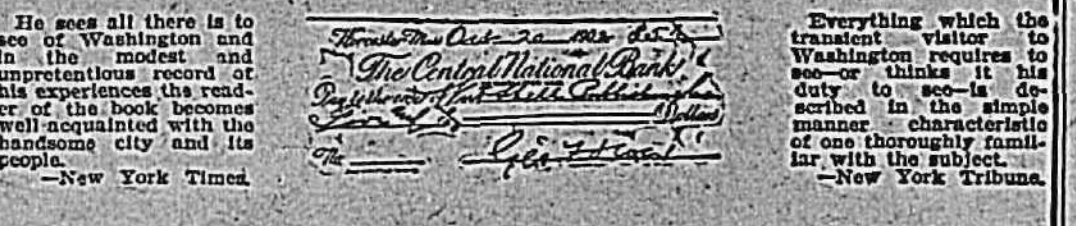 He sees all there is to
see of Washington and
in the modest and
unpretentious record of
his experiences the read-
er of the book becomes
well acquainted with the
handsome city and its
people.
—New York Times.
Oct 20
The Central National Bank
Pay to the order of
Dollars
No
Everything which the
transient visitor to
Washington requires to
see—or thinks it his
duty to see—is de-
scribed in the simple
manner characteristic
of one thoroughly famil-
iar with the subject.
—New York Tribune.